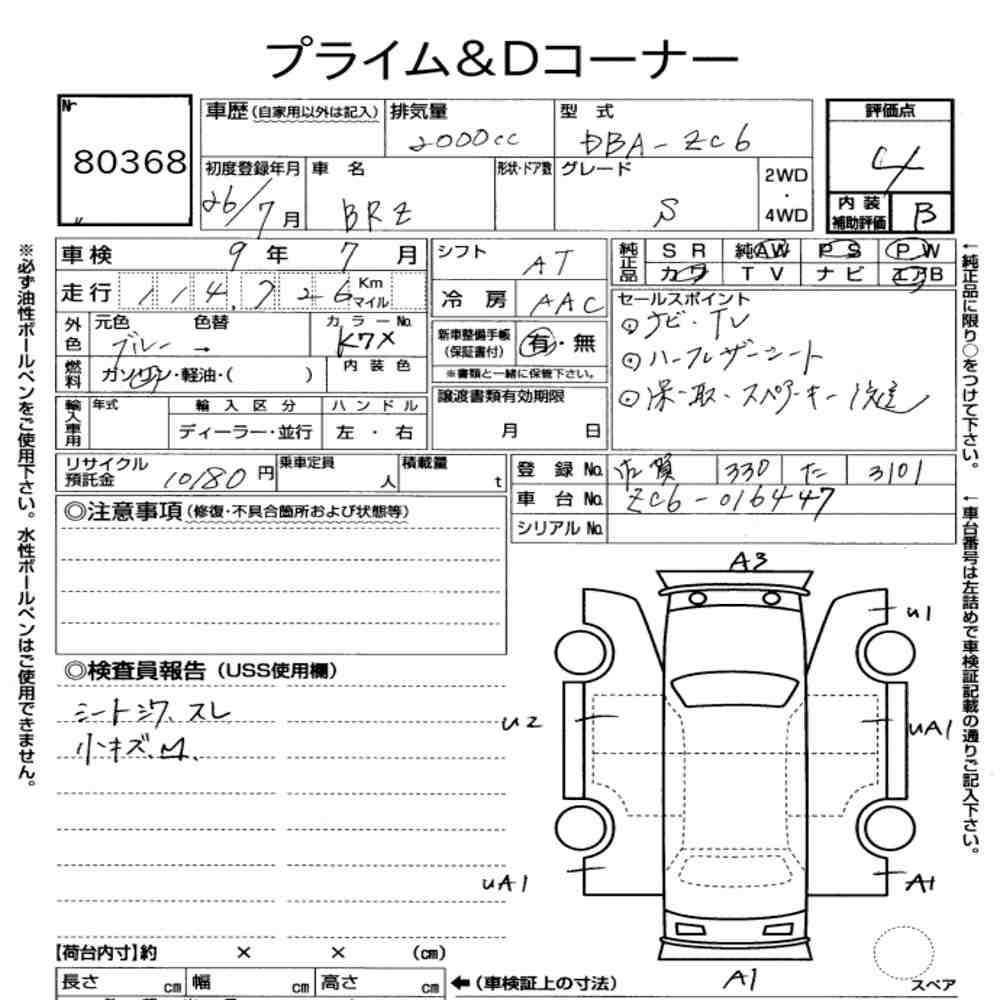 プライム&Dコーナー
Nr
80368
車歴(自家用以外は記入) 排気量 2000cc 型式 DBA-ZC6
評価点 4
初度登録年月 26/7月 車名 BRZ 形状・ドア数 グレード S 2WD・4WD
内装補助評価 B
車検 9年7月 シフト AT
純正品 SR 純AW PS PW
カワ TV ナビ エアB
走行 114,726 Km マイル 冷房 AAC
セールスポイント
⊙ナビ・TV
⊙ハーフレザーシート
⊙保・取・スペアーキー後送
外色 元色 ブルー → 色替 カラーNo. K7X
新車整備手帳(保証書付) 有・無
※書類と一緒に保管下さい。
燃料 ガソリン・軽油・( ) 内装色
譲渡書類有効期限
月 日
輸入車用 年式 輸入区分 ハンドル
ディーラー・並行 左・右
リサイクル預託金 10180円 乗車定員 人 積載量 t
登録No. 佐賀 330 た 3101
車台No. ZC6-016447
シリアルNo.
◎注意事項(修復・不具合箇所および状態等)
◎検査員報告(USS使用欄)
シートシワ、スレ
小キズ、M.
A3
U1
U2
UA1
UA1
A1
A1
スペア
【荷台内寸】約 × × (cm)
長さ cm 幅 cm 高さ cm ←(車検証上の寸法)
※必ず油性ボールペンをご使用下さい。水性ボールペンはご使用できません。
←純正品に限り○をつけて下さい。
←車台番号は左詰めで車検証記載の通りご記入下さい。